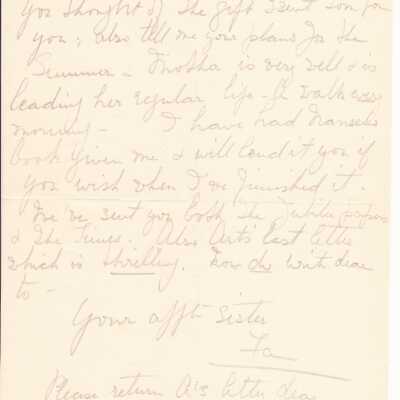 you thought of the gift I sent from for
you; also tell me your plans for the
Summer – Mother is very well & is
leading her regular life – & walks every
morning – I have had Nansen's
book given me & will lend it you if
you wish when I've finished it.
We've sent you both the Jubilee papers
& The Times. Also Art's last letter
which is thrilling. Now do write dear
to –
Your affte Sister
Fa
Please return A's letter dear